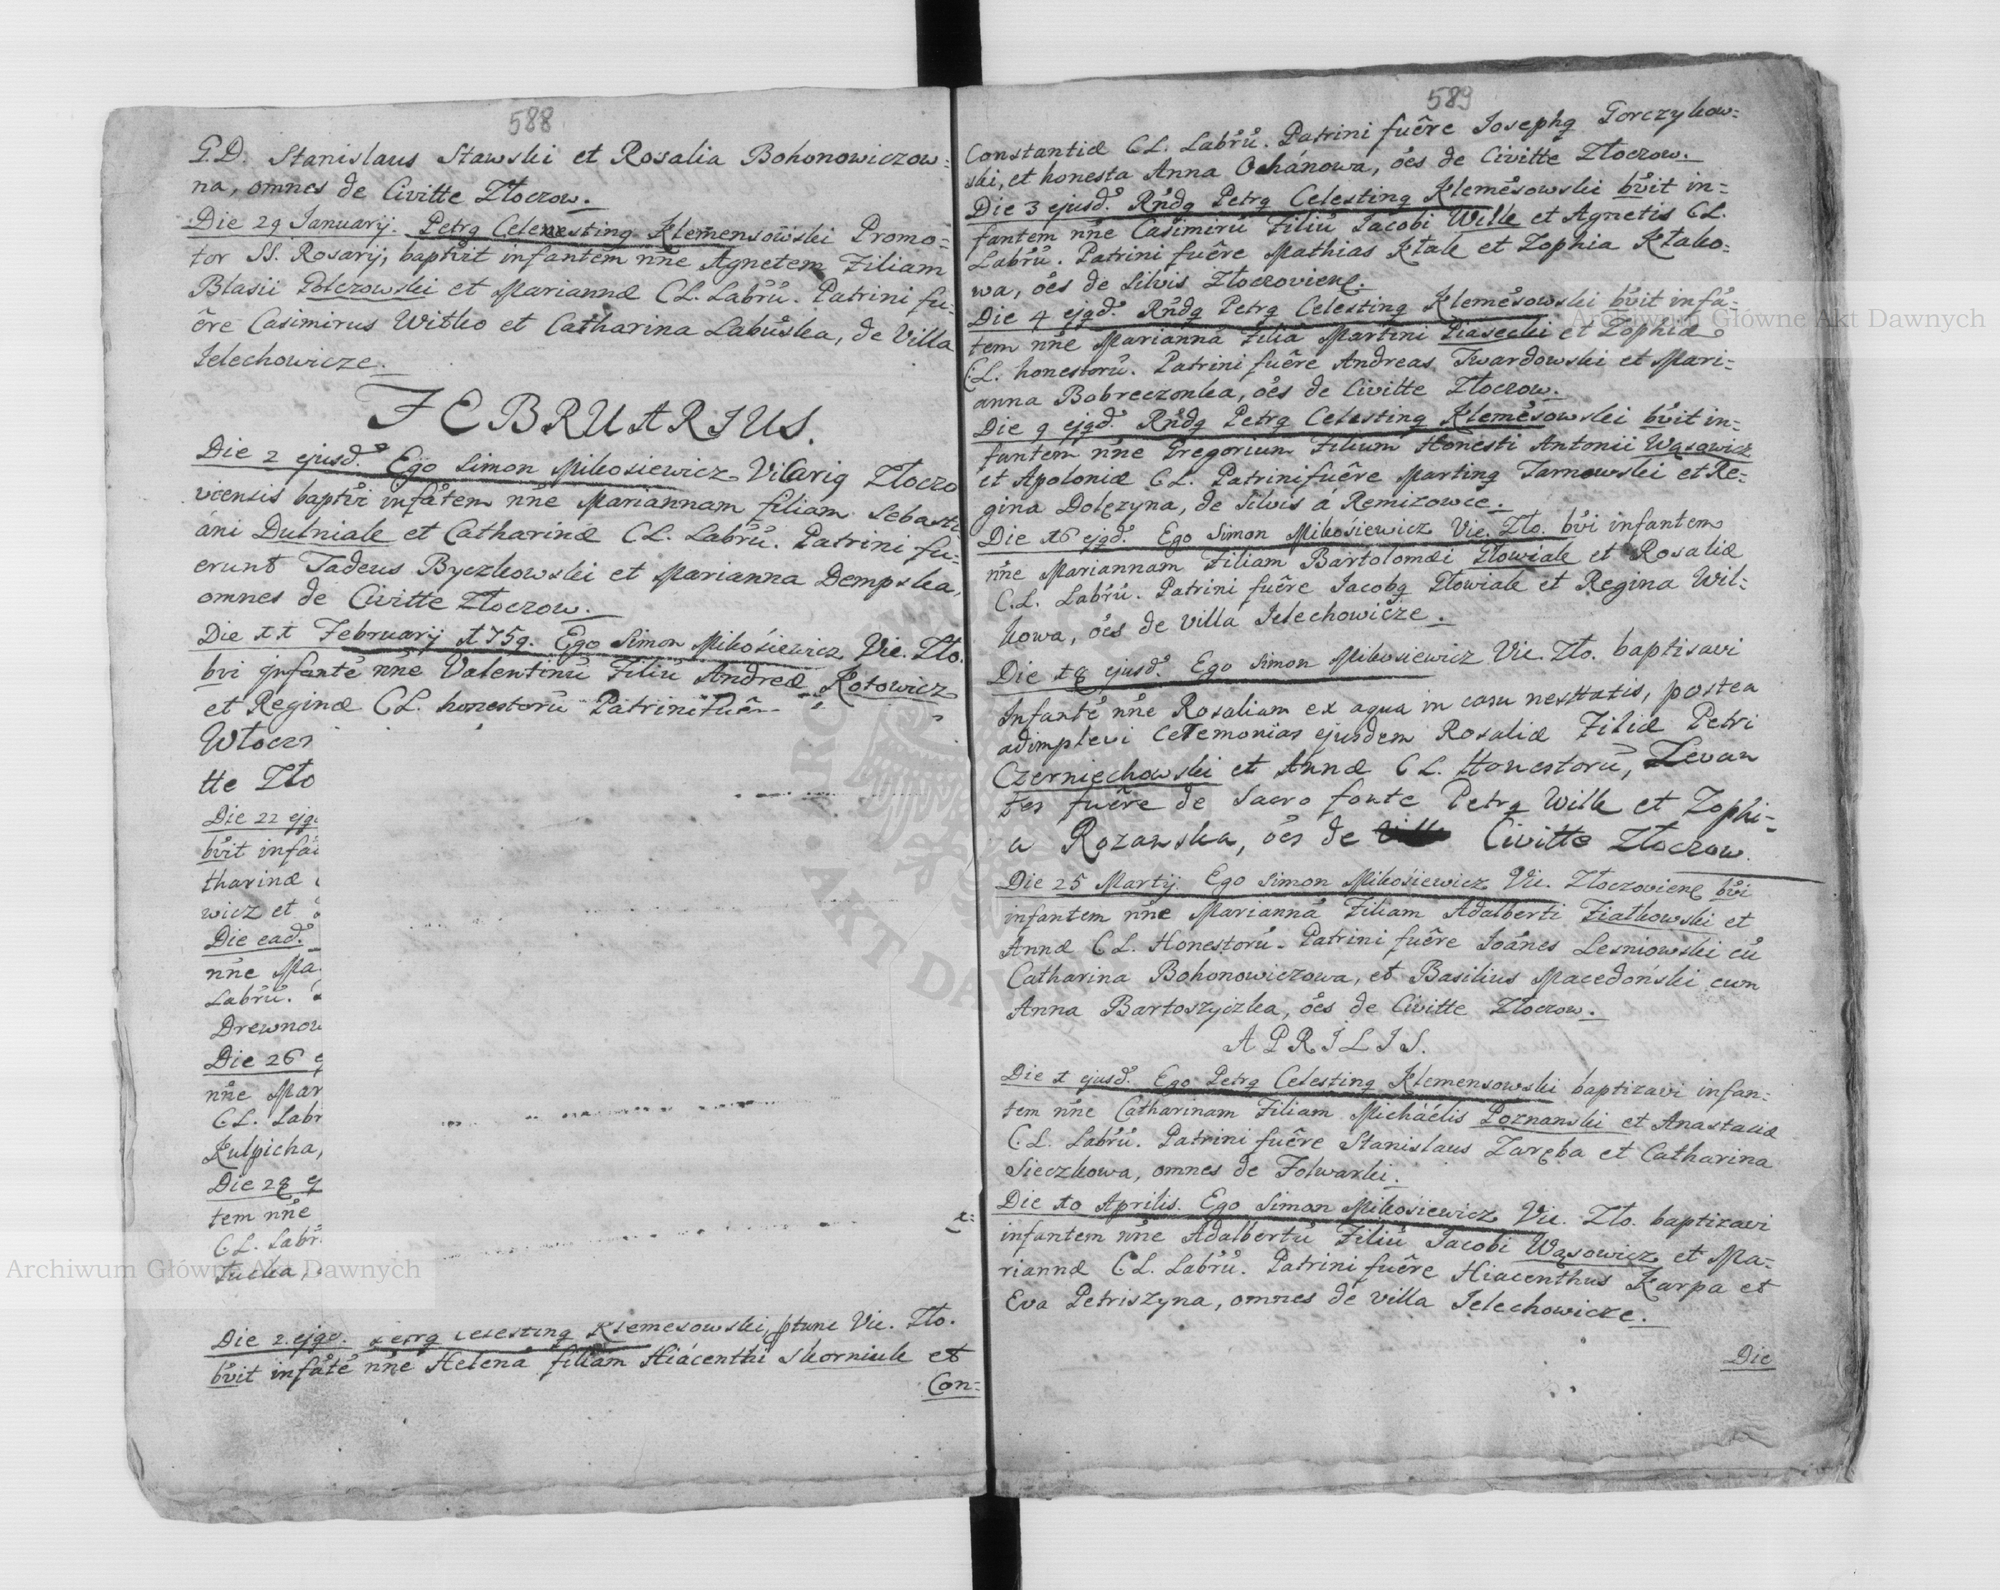 588
G.D. Stanislaus Stawski et Rosalia Bohonowiczow=
na, omnes de Civitte Złoczow.
Die 29 Januarij. Petrq Celenestinq Klemensowski Promo=
tor SS. Rosarij, baptivit infantem nn̄e Agnetem Filiam
Blasii Polczowski et Mariannæ CL. Labrū. Patrini fu=
êre Casimirus Witko et Catharina Labuska, de Villa
Jelechowicze.
FEBRUARIUS.
Die 2 ejusd. Ego Simon Mikosiewicz Vicariq Złoczo
viensis baptivi infātem nn̄e Mariannam filiam Sebasti
ani Dutniak et Catharinæ CL. Labrū. Patrini fu=
erunt Tadeus Byczkowski et Marianna Dempska,
omnes de Civitte Złoczow.
Die 11 Februarij 1759. Ego Simon Mikosiewicz Vic. Zło.
bvi infantē nn̄e Valentinū Filiū Andreæ Kotowicz
et Reginæ CL. honestorū Patrini fuêr
Włocz
tte Zło
Die 22 ejq
bvit infā
tharinæ
wicz et
Die ead.
nn̄e Ma
Labrū.
Drewnow
Die 26 e
nn̄e Mar
CL. Labr
Kulpicha,
Die 28 e
tem nn̄e
CL. Labr
tucka,
Die 2 ejqd. Petrq Celestinq Klemēsowski, ptunc Vic. Zło.
bvit infātē nn̄e Helenā filiam Hiacenthi Skorniuk et
Con=
589
Constantiæ CL. Labrū. Patrini fuêre Josephq Gorczykow=
ski, et honesta Anna Ochānowa, oēs de Civitte Złoczow.
Die 3 ejusd. Rndq Petrq Celestinq Klemēsowski bvit in=
fantem nn̄e Casimirū Filiū Jacobi Wilk et Agnetis CL.
Labrū. Patrini fuêre Mathias Ktak et Zophia Ktako=
wa, oēs de Silvis Złoczovienę.
Die 4 ejqd. Rndq Petrq Celestinq Klemēsowski bvit infā=
tem nn̄e Mariannā Filiā Martini Piasecki et Zophiæ
CL. honestorū. Patrini fuêre Andreas Twardowski et Mari=
anna Bobreczonka, oēs de Civitte Złoczow.
Die 9 ejqd. Rndq Petrq Celestinq Klemēsowski bvit in=
fantem nn̄e Gregorium Filium Honesti Antonii Wąsowicz
et Apoloniæ CL. Patrini fuêre Martinq Tarnowski et Re=
gina Dolęzyna, de Silvis á Remizowce.
Die 16 ejqd. Ego Simon Mikosiewicz Vic. Zło. bvi infantem
nn̄e Mariannam Filiam Bartolomæi Głowiak et Rosaliæ
C.L. Labrū. Patrini fuêre Jacobq Głowiak et Regina Wil=
kowa, oēs de villa Jelechowicze.
Die 18 ejusd. Ego Simon Mikosiewicz Vic. Zło. baptisavi
Infantē nn̄e Rosaliam ex aqua in casu nesttatis, postea
adimplevi Ceremonias ejusdem Rosaliæ Filiæ Petri
Czerniechowski et Annæ CL. Honestorū, Levan
tes fuêre de Sacro fonte Petrq Wilk et Zophi=
a Rozanska, oēs de Civitte Złoczow.
Die 25 Martij. Ego Simon Mikosiewicz Vic. Złoczovienę bvi
infantem nn̄e Mariannā Filiam Adalberti Ziatkowski et
Annæ CL. Honestorū. Patrini fuêre Joānes Lesniowski cū
Catharina Bohonowiczowa, et Basilius Macedoński cum
Anna Bartoszyczka, oēs de Civitte Złoczow.
APRILIS.
Die 1 ejusd. Ego Petrq Celestinq Klemensowski baptizavi infan=
tem nn̄e Catharinam Filiam Michaëlis Poznanski et Anastaciæ
C.L. Labrū. Patrini fuêre Stanislaus Zaręba et Catharina
Sieczkowa, omnes de Folwarki.
Die 10 Aprilis. Ego Simon Mikosiewicz Vic. Zło. baptizavi
infantem nn̄e Adalbertū Filiū Jacobi Wąsowicz et Ma=
riannæ CL. Labrū. Patrini fuêre Hiacenthus Karpa et
Eva Petriszyna, omnes de villa Jelechowicze.
Die
Archiwum Główne Akt Dawnych
Archiwum Główne Akt Dawnych